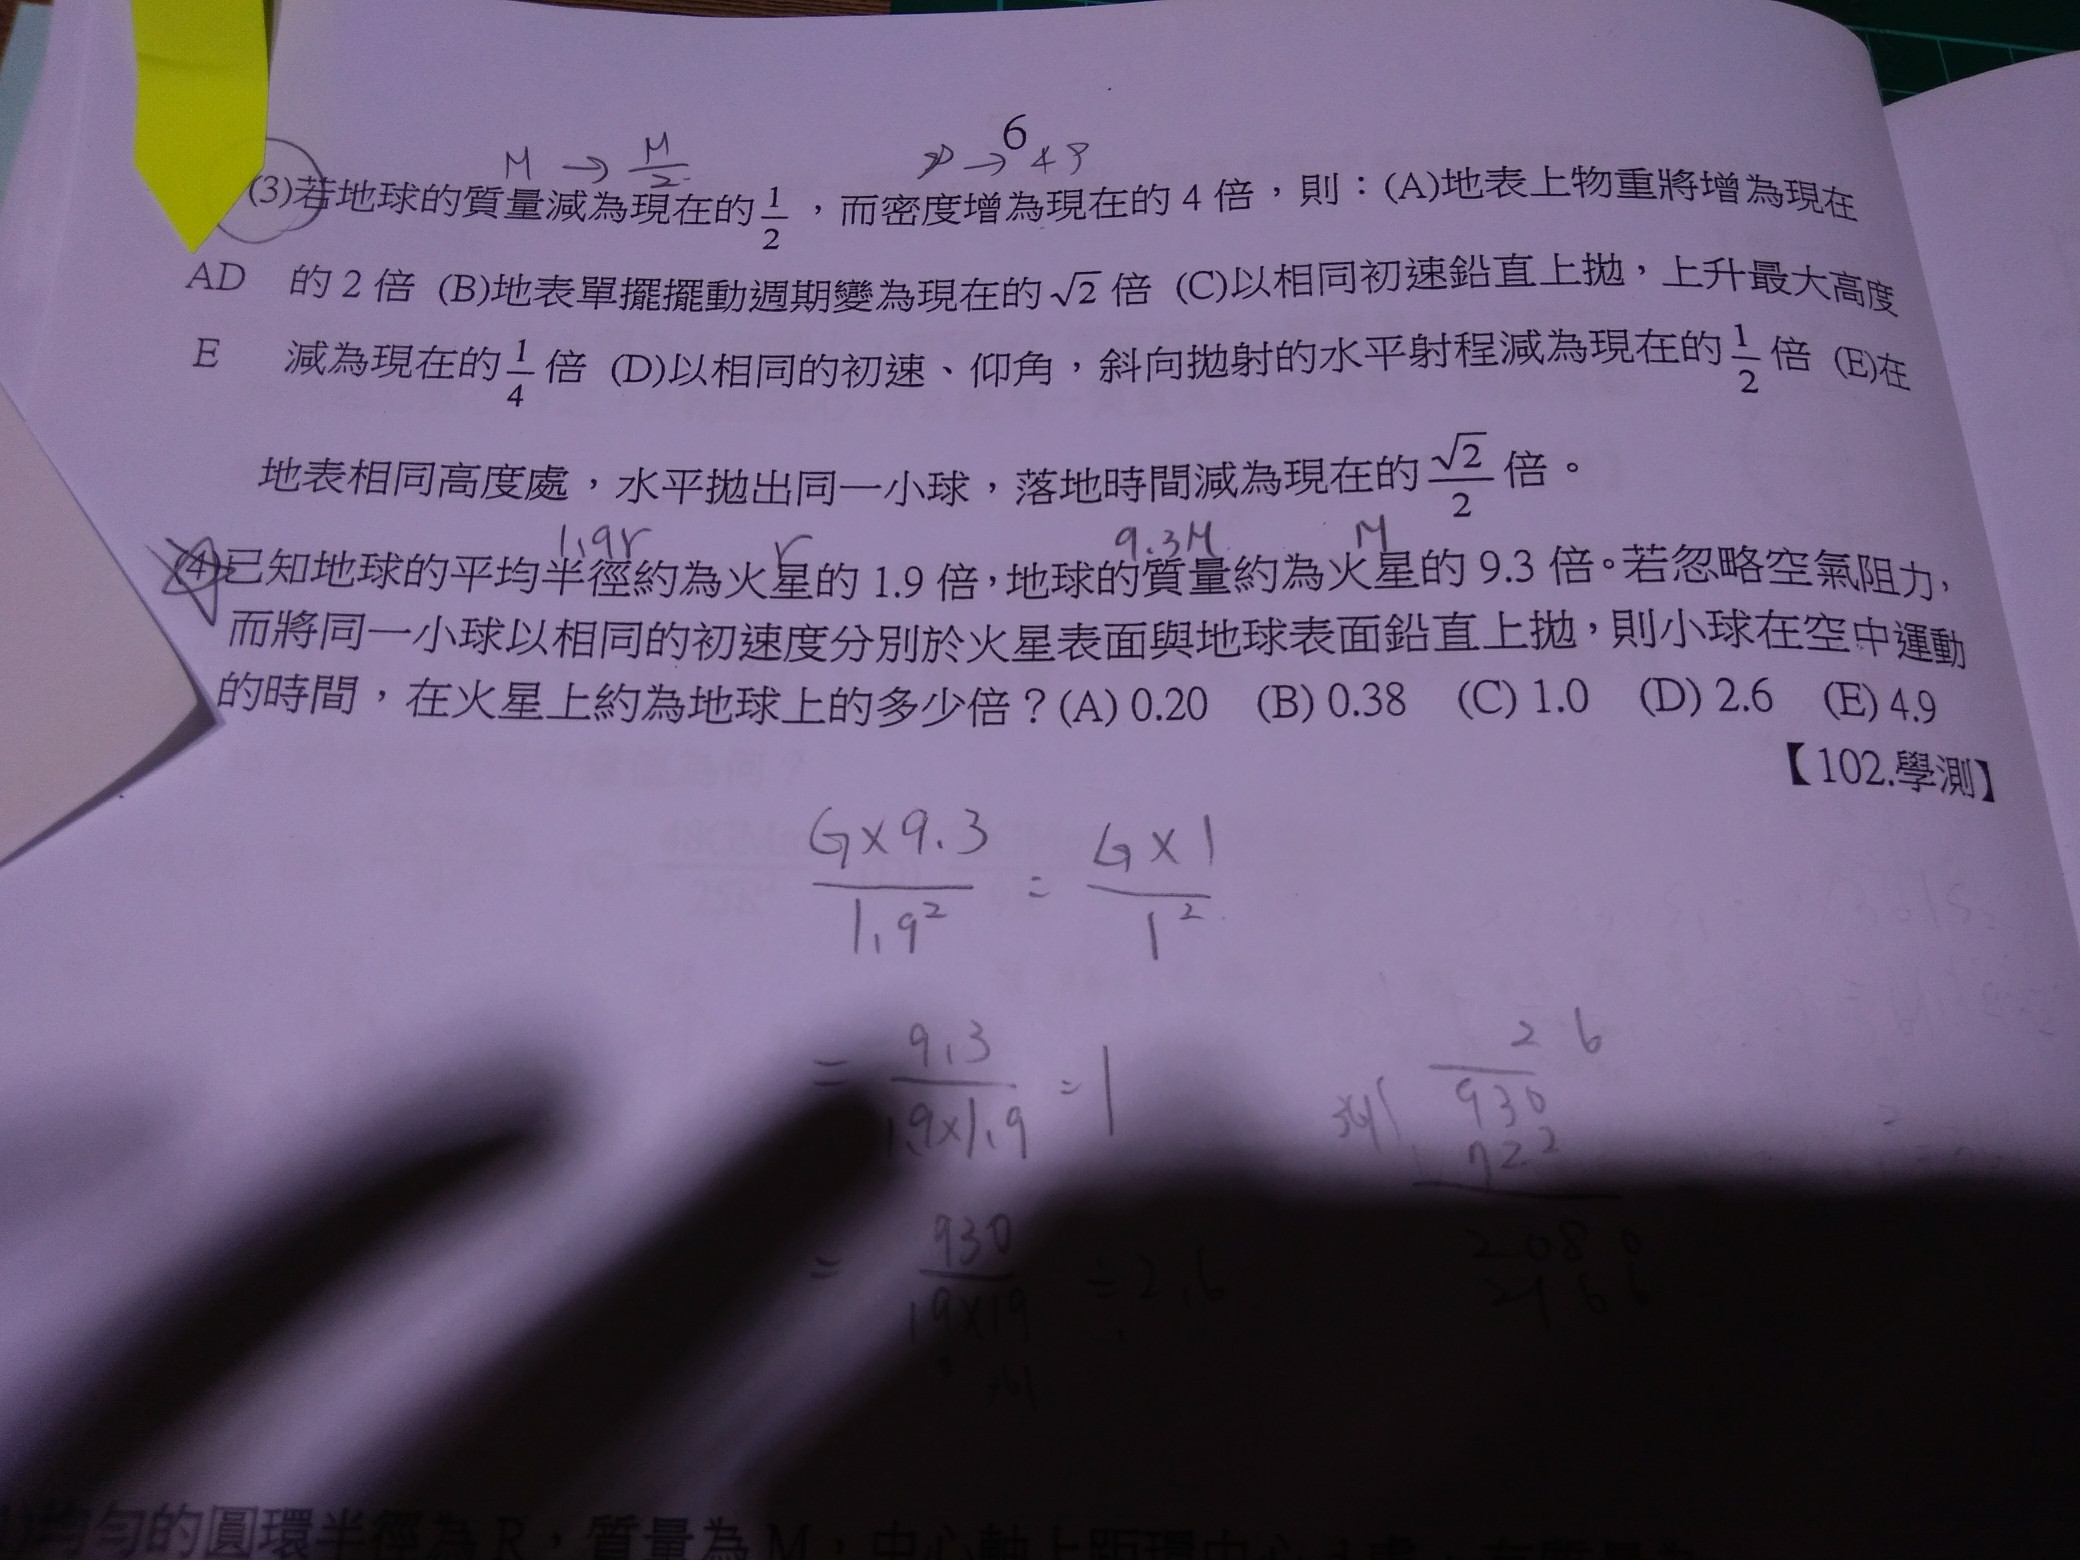 6
M → M/2
→ 4ρ
(3)若地球的質量減為現在的 1/2 ，而密度增為現在的 4 倍，則：(A)地表上物重將增為現在
AD 的 2 倍 (B)地表單擺擺動週期變為現在的 √2 倍 (C)以相同初速鉛直上拋，上升最大高度
E 減為現在的 1/4 倍 (D)以相同的初速、仰角，斜向拋射的水平射程減為現在的 1/2 倍 (E)在
地表相同高度處，水平拋出同一小球，落地時間減為現在的 √2/2 倍。
1.9r r 9.3M M
(4)已知地球的平均半徑約為火星的 1.9 倍，地球的質量約為火星的 9.3 倍。若忽略空氣阻力，
而將同一小球以相同的初速度分別於火星表面與地球表面鉛直上拋，則小球在空中運動
的時間，在火星上約為地球上的多少倍？(A) 0.20 (B) 0.38 (C) 1.0 (D) 2.6 (E) 4.9
【102.學測】
G×9.3/1.9² = G×1/1²
= 9.3/1.9×1.9 = 1
2 6
361 930
722
2080
2166
= 930/19×19 = 2.6
均勻的圓環半徑為 R，質量為 M，中心軸上距環中心 d 處，